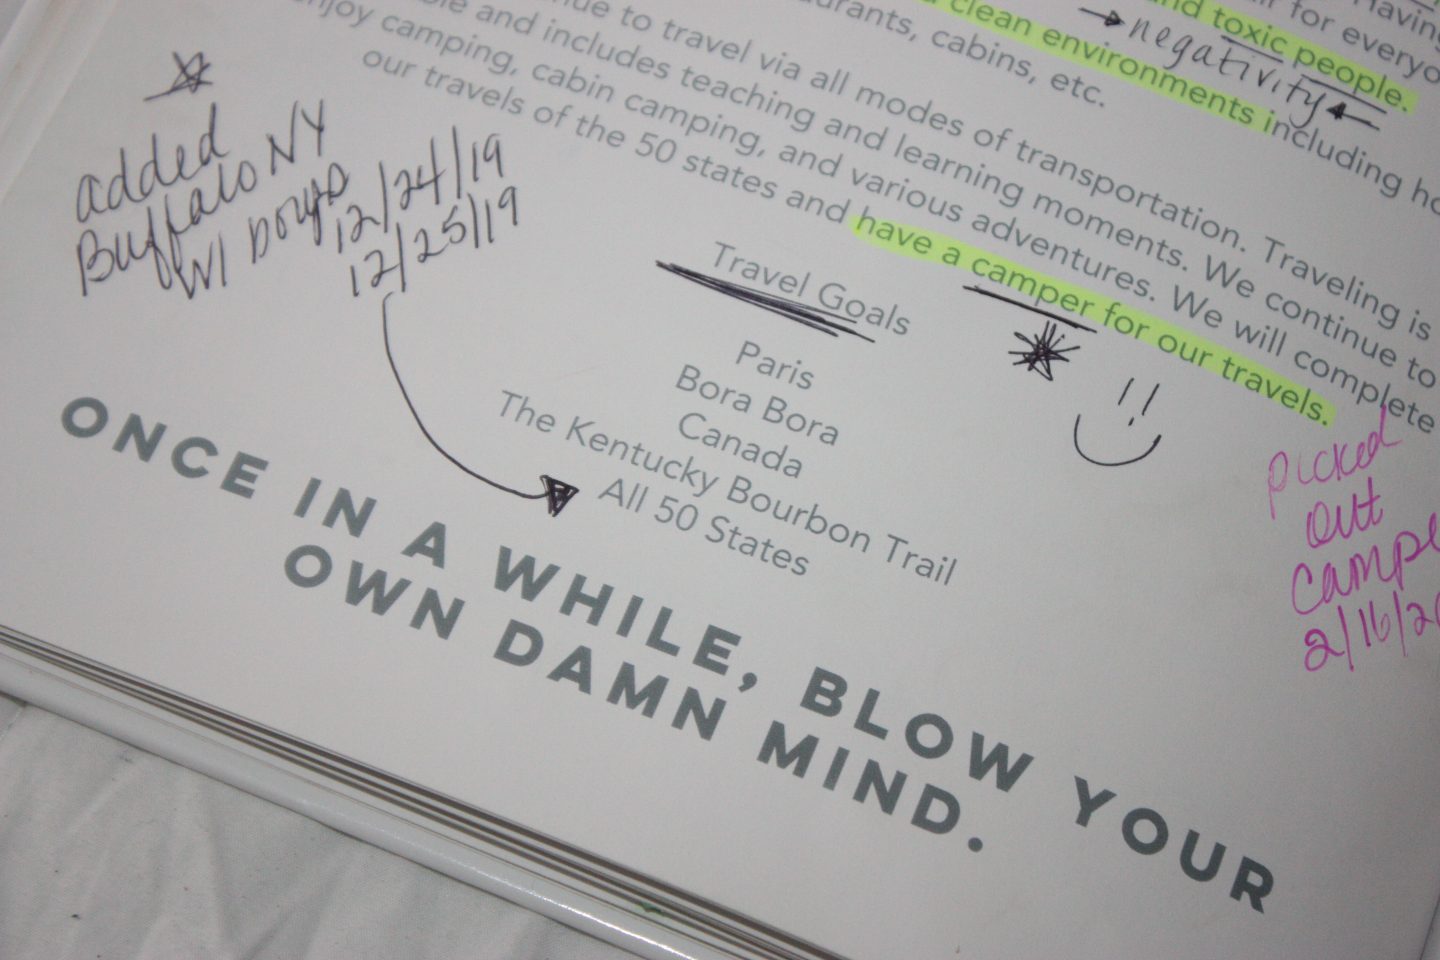 and toxic people.
clean environments including
→ negativity ←
to travel via all modes of transportation. Traveling is
and includes teaching and learning moments. We continue to
enjoy camping, cabin camping, and various adventures. We will complete
our travels of the 50 states and have a camper for our travels.
cabins, etc.
for everyo
Having
added
Buffalo NY
W/ Dougs
12/24/19
12/25/19
Travel Goals
Paris
Bora Bora
Canada
The Kentucky Bourbon Trail
All 50 States
picked
out
campe
2/16/20
ONCE IN A WHILE, BLOW YOUR
OWN DAMN MIND.